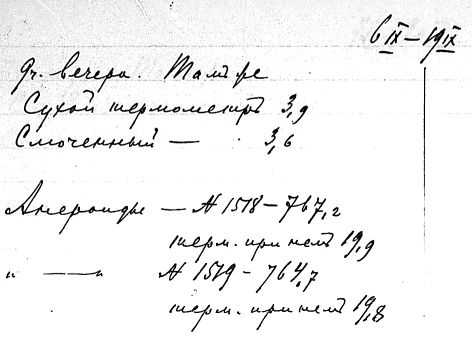 6 IX — 19 IX
9 ч. вечера. Таштре
Сухой термометръ 3,9
Смоченный — 3,6
Анероиды — N 1518 – 767,2
терм. при немъ 19,9
" — " N 1519 – 764,7
терм. при немъ 19,8